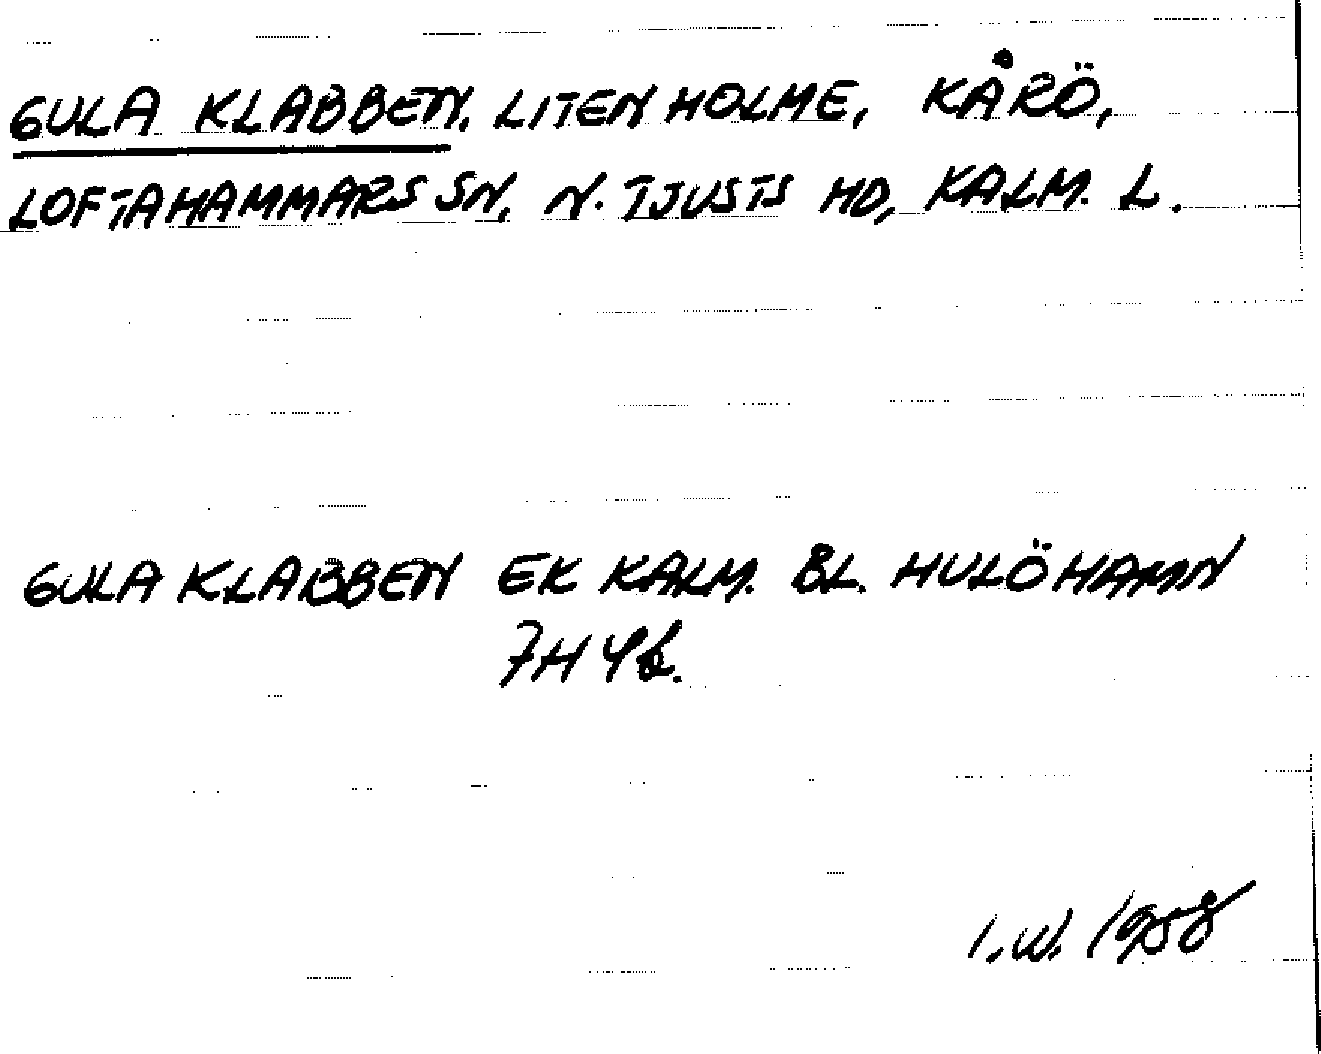 GULA KLABBEN. LITEN HOLME, KÅRÖ,
LOFTAHAMMARS SN, N. TJUSTS HD, KALM. L.
GULA KLABBEN EK KALM. BL. HULÖHAMN
7H 4b.
I.W. 1958